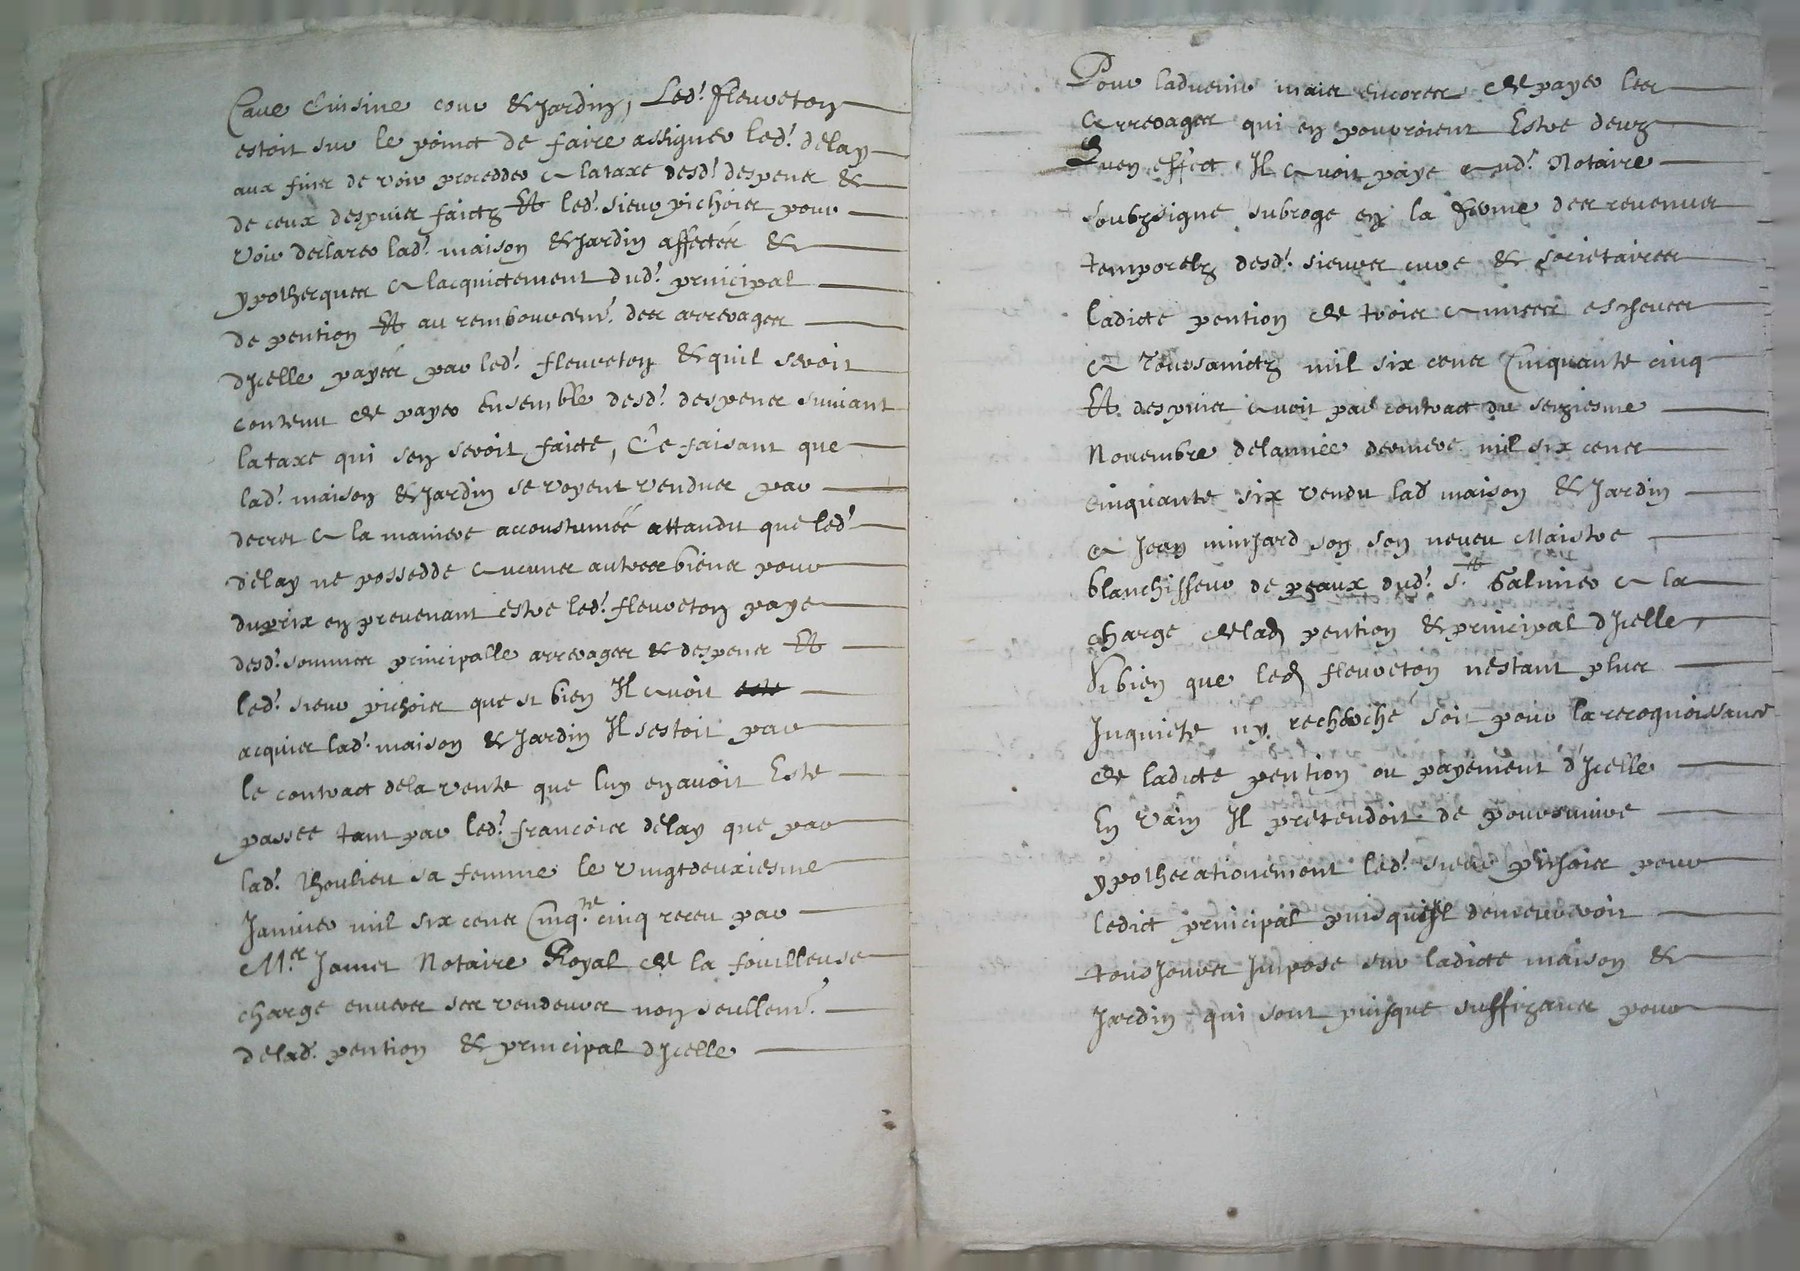 Cave Cuisine cour & Jardin, Led.t fleureton
estoit sur le poinct de faire assigner led.t delay
aux fines de voir proceddes a la taxe desd.t despens &
de ceux despuis faictz Et led.t sieur pichois pour
Voir declares lad.t maison & Jardin affectés &
ypothecques a lacquictement dud.t principal
de pention Et au remboursem.t des arrerages
dIcelle payés par led.t fleureton & quil seroit
contenu de payer Ensemble desd.t despens suivant
la taxe qui sen seroit faicte, Ce faisant que
lad.t maison & Jardin se voyent vendues par
decret a la maniere accoustumée attandu que led.t
delay ne possedde aucunes autres biens pour
du prix en prevenant estre led.t fleureton paye
desd.t sommes principalle arrerages & despens Et
led.t sieur pichois que si bien Il avoit
acquis lad.t maison & Jardin Il sestoit par
le contract de la vente que luy en avoit Este
passee tant par led.t francois delay que par
lad.t Thoulieu sa femme le vingt deuxiesme
Janvier mil six cens Cinq.te cinq receu par
M.re James Notaire Royal de la fouilleuse
charge envers ses vendeurs non seullem.t
de lad.t pention & principal dIcelle
Pour ladvenir mais encores de payer les
arrerages qui en pourroient Estre deuz
Quen effect Il avoit paye aud.t Notaire
soubzsigne subroge en la ferme des revenus
temporelz desd.t sieurs cure & societaires
ladicte pention de trois annees escheues
a Toussainctz mil six cens Cinquante cinq
Et despuis avoit par contract du seiziesme
Novembre de lannée derniere mil six cens
cinquante six vendu lad maison & Jardin
a Jean minjard son son neveu Maistre
blanchisseur de peaux dud.t S.t Galmier a la
charge de lad pention & principal dIcelle,
Si bien que led fleureton nestant plus
Inquiete ny recherché soit pour la recognoissance
de ladicte pention ou payement dIcelle
En vain Il pretendoit de poursuivre
ypothecationement led.t sieur pichois pour
ledict principal puisquil demeuroit
tousJours Impose sur ladicte maison &
Jardin qui sont puisque suffizans pour